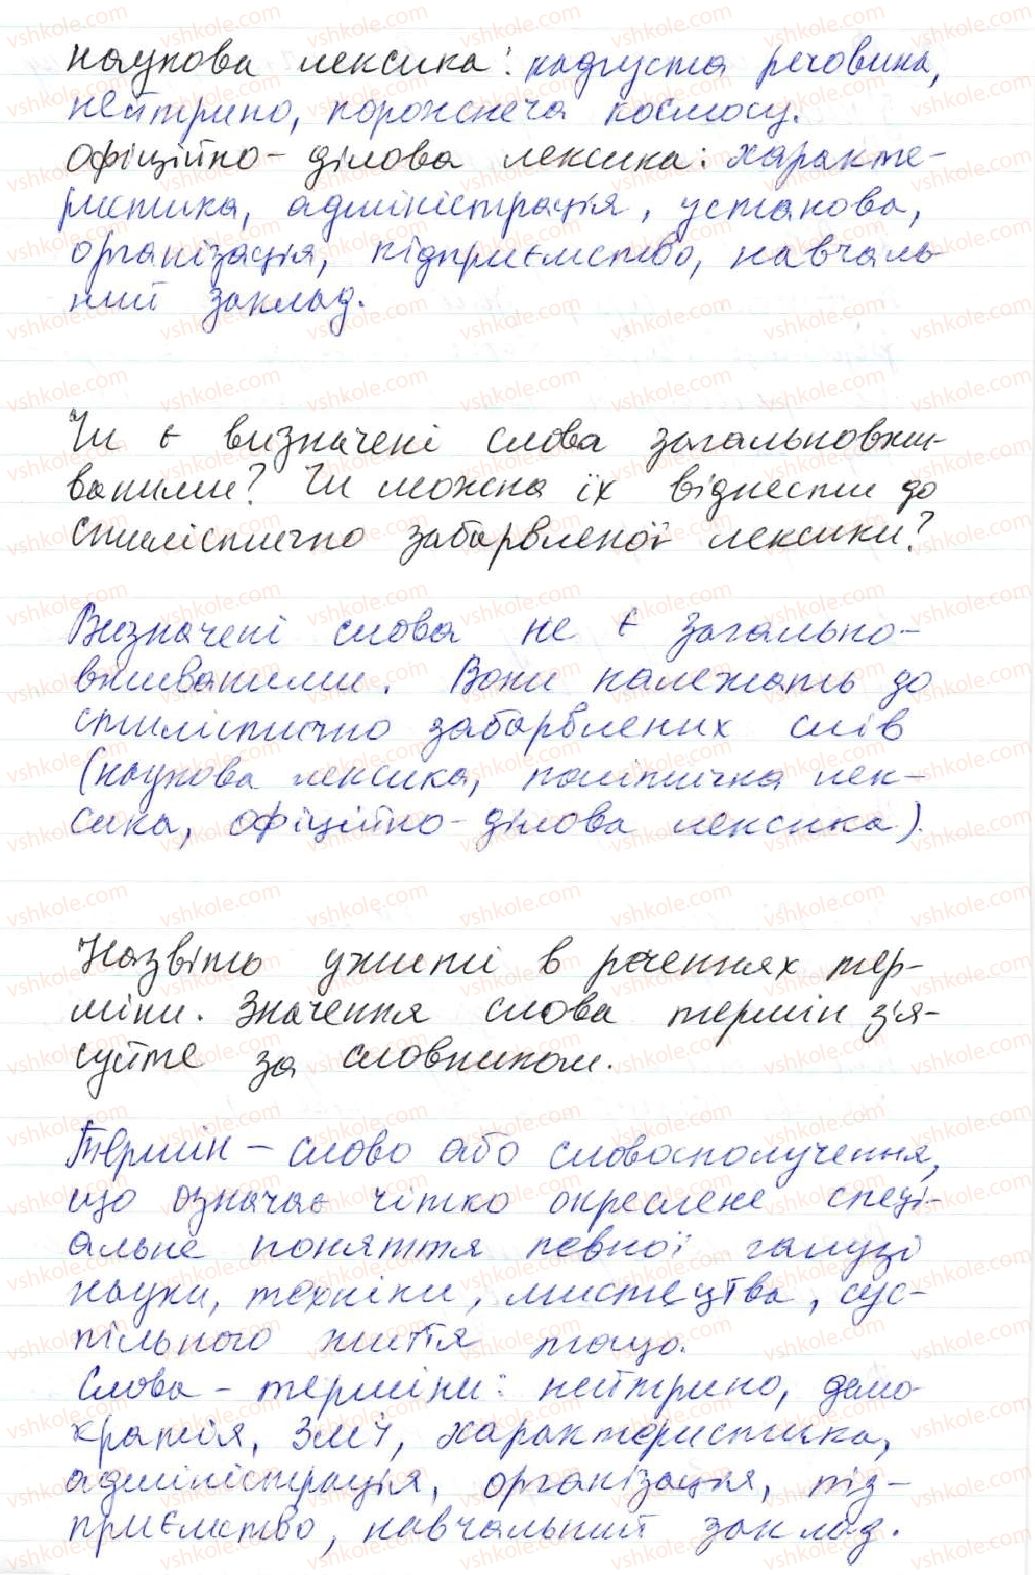 наукова лексика: надгуста речовина,
нейтрино, порожнеча космосу.
Офіційно-ділова лексика: характе-
ристика, адміністрація, установа,
організація, підприємство, навчаль-
ний заклад.
Чи є визначені слова загальновжи-
ваними? Чи можна їх віднести до
стилістично забарвленої лексики?
Визначені слова не є загально-
вживаними. Вони належать до
стилістично забарвлених слів
(наукова лексика, політична лек-
сика, офіційно-ділова лексика).
Назвіть ужиті в реченнях тер-
міни. Значення слова термін з'я-
суйте за словником.
Термін – слово або словосполучення,
що означає чітко окреслене спеці-
альне поняття певної галузі
науки, техніки, мистецтва, сус-
пільного життя тощо.
Слова-терміни: нейтрино, демо-
кратія, ЗМІ, характеристика,
адміністрація, організація, під-
приємство, навчальний заклад.